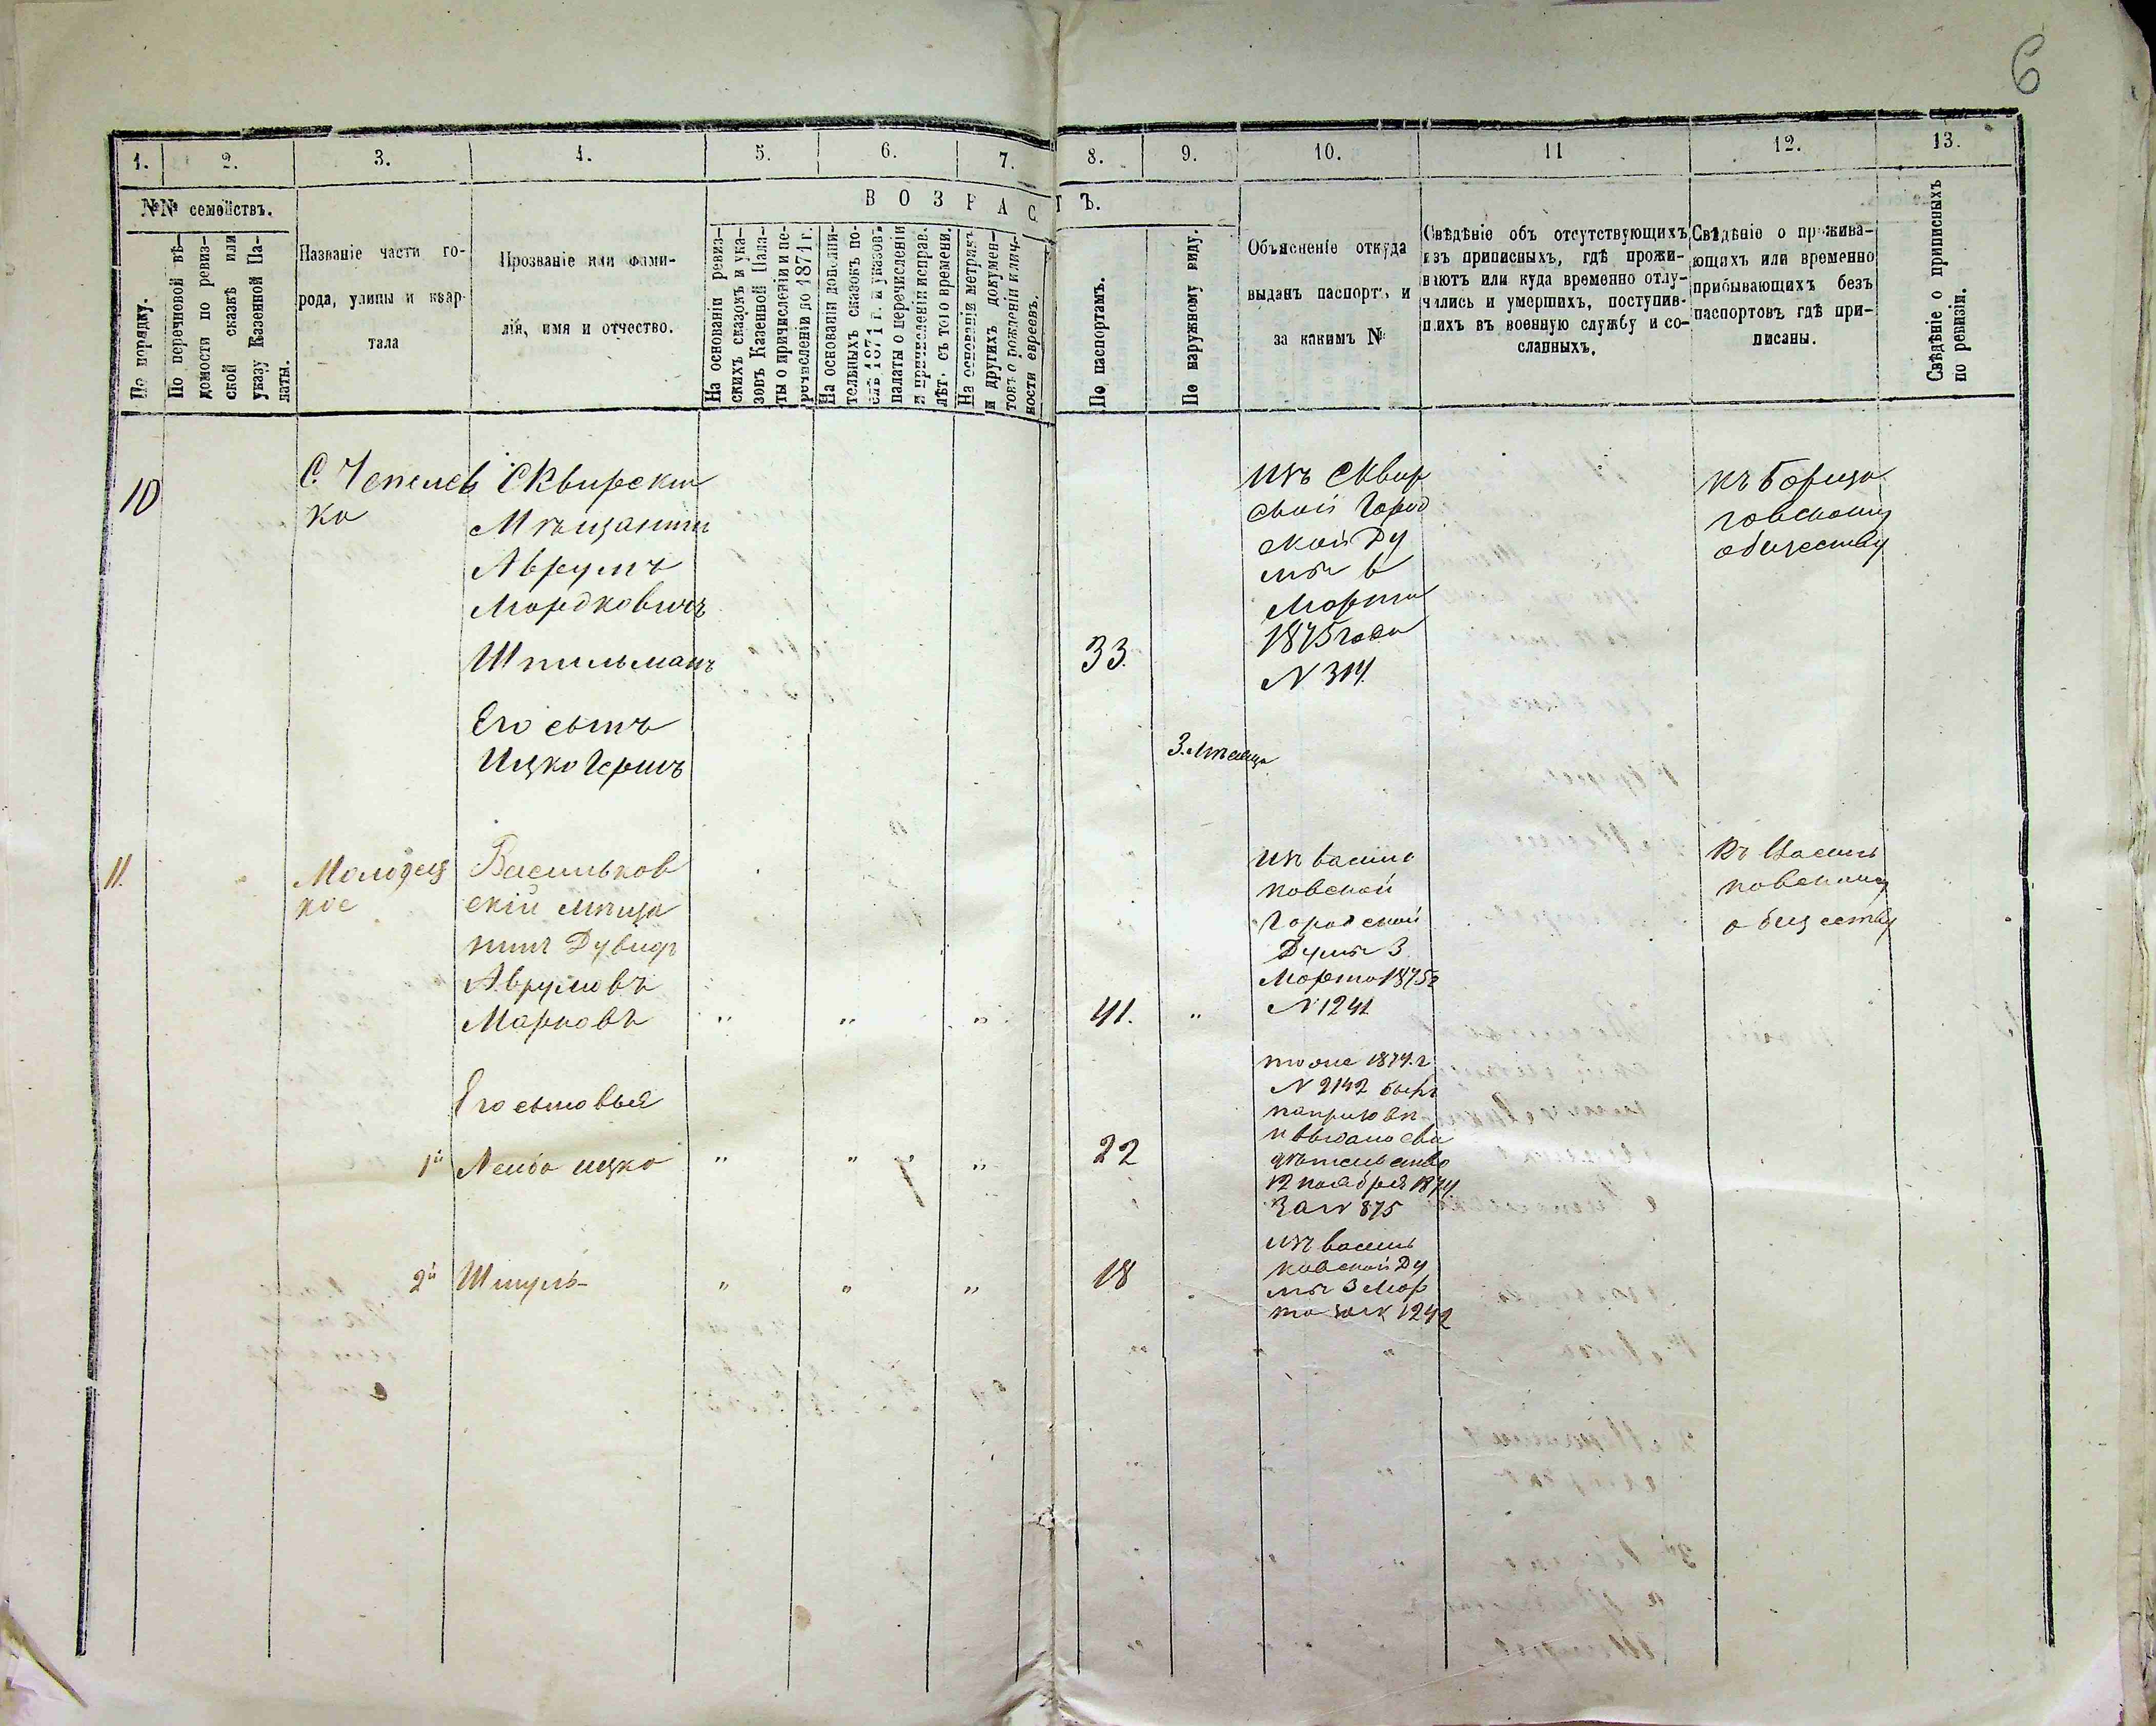 6
1. 2. 3. 4. 5. 6. 7. 8. 9. 10. 11 12. 13.
№№ семействъ.
По порядку.
По перечневой вѣ-
домости по ревиз-
ской сказкѣ или
указу Казенной Па-
латы.
Названіе части го-
рода, улицы и квар-
тала
Прозваніе или фами-
лія, имя и отчество.
ВОЗРАСТЪ.
На основаніи ревиз-
скихъ сказокъ и ука-
зовъ Казенной Пала-
ты о причисленіи и пе-
речисленіи до 1871 г.
На основаніи дополни-
тельныхъ сказокъ по-
слѣ 1871 г. и указовъ
палаты о перечисленіи
и причисленіи исправ.
лѣт. съ того времени.
На основаніи метрикъ
и другихъ докумен-
товъ о рожденіи и лич-
ности евреевъ.
По паспортамъ.
По наружному виду.
Объясненіе откуда
выданъ паспортъ и
за какимъ №
Свѣдѣніе объ отсутствующихъ
изъ приписныхъ, гдѣ прожи-
ваютъ или куда временно отлу-
чились и умершихъ, поступив-
шихъ въ военную службу и со-
сланныхъ.
Свѣдѣніе о прожива-
ющихъ или временно
прибывающихъ безъ
паспортовъ гдѣ при-
писаны.
Свѣдѣніе о приписныхъ
по ревизіи.
10
С. Чепелев
ка
Сквирский
Мѣщанинъ
Аврумъ
Мордковичъ
Шпильманъ
33.
Изъ Сквир
ской Город
ской Ду
мы 6
Марта
1875 года
N 314.
Къ Борща
говскому
обществу
Его сынъ
Ицко Гершъ
3. мѣсяца
11.
Молодец
кое
Васильков
скій мѣща
нинъ Дувидъ
Аврумовъ
Марковъ
" " " 41. "
Изъ Василь
ковской
Городской
Думы 3
Марта 1875 г
N 1241
Къ Василь
ковскому
обществу
Его сыновья
1й Лейба Ицко " " " 22
тоже 1874. г
N 2142 былъ
и выдано сви
дѣтельство
12 ноября 1874
За N 875
2й Шмуль- " " " 18
Изъ Василь
ковской Ду
мы 3 Мар
та за N 1242